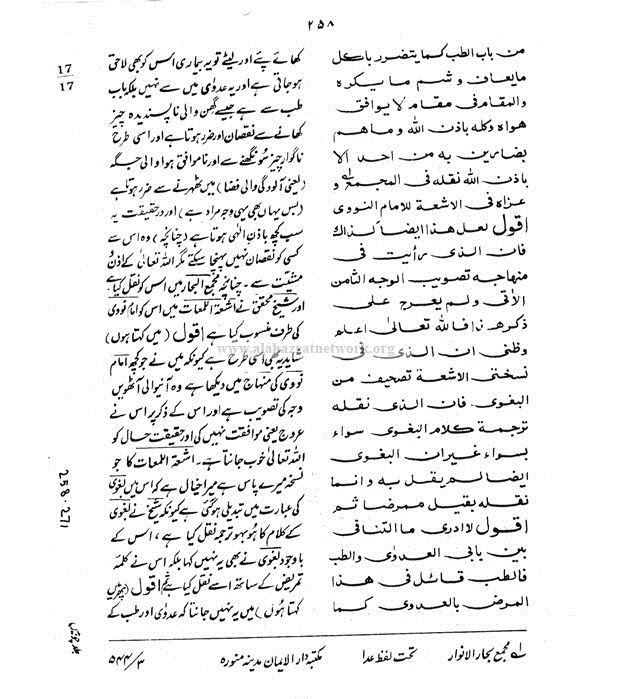 ۲۵۸
من باب الطب كما يتضرر باكل
ما يعاف و شم ما يكره
والمقام فى مقام لا يوافق
هواه وكله باذن الله و ما هم
بضارين به من احد الا
باذن الله نقله فى المجمع
عزاه فى الاشعة للامام النووى
اقول لعل هذا ايضا كذاك
فان الذى رأيت فى
منهاجه تصويب الوجه الثامن
الأتى و لم يعرج على
ذكر هذا فالله تعالى اعلم
وظنى ان الذى فى
نسختى الاشعة تصحيف من
البغوى. فان الذى نقله
ترجمة كلام البغوى سواء
بسواء غير ان البغوى
ايضا لم يقل به و انما
نقله بقيل ممرضا ثم
اقول لا ادرى ما التنافى
بين بابى العدوٰى والطب
فالطب قائل فى هذا
المرض بالعدوى كما
17
17
کھائے پئے اور لیٹے تو یہ بیماری اس کو بھی لاحق
ہوجاتی ہے اور یہ عدوٰی میں سے نہیں بلکہ باب
طب سے ہے جیسے گھن والی ناپسندیدہ چیز
کھانے سے نقصان اور ضرر ہوتا ہے اور اسی طرح
ناگوار چیز سُونگھنے سے اور ناموافق ہوا والی جگہ
(یعنی آلودگی والی فضا) میں ٹھہرنے سے ضرر ہوتا ہے
(بس یہاں بھی یہی وجہ مراد ہے) اور درحقیقت یہ
سب کچھ باذنِ الٰہی ہوتا ہے (چنانچہ) وہ اس سے
کسی کو نقصان نہیں پہنچا سکتے مگر اللہ تعالٰی کے اذن و
مشیّت سے۔ چنانچہ مجمع البحار میں اس کو نقل کیا ہے
اور شیخ محقق نے اشعۃ اللمعات میں اس کو امام نووی
کی طرف منسوب کیا ہے اقول (میں کہتا ہوں)
شاید یہ بھی اسی طرح ہے کیونکہ میں نے جو کچھ امام
نووی کی منہاج میں دیکھا ہے وہ آنیوالی آٹھویں
وجہ کی تصویب ہے اور اس کے ذکر پر اس نے
عروج یعنی موافقت نہیں کی اور حقیقتِ حال کو
اللہ تعالٰی خوب جانتا ہے۔ اشعۃ اللمعات کا جو
نسخہ میرے پاس ہے میرا خیال ہے کہ اس میں بغوی
کی عبارت میں تبدیلی ہوگئی ہے کیونکہ شیخ نے بغوی
کے کلام کا ہُو بہو ترجمہ نقل کیا ہے، اس کے
باوجود بغوی نے بھی یہ نہیں کہا بلکہ اس نے کلمۂ
تمریض کے ساتھ اسے نقل کیا ہے اقول (پھر میں
کہتا ہوں) میں یہ نہیں جانتا کہ عدوٰی اور طب کے
www.alahazratnetwork.org
258-271
مجمع بحار الانوار تحت لفظ عدا مکتبہ دار الایمان مدینہ منورہ ۳/۵۴۴